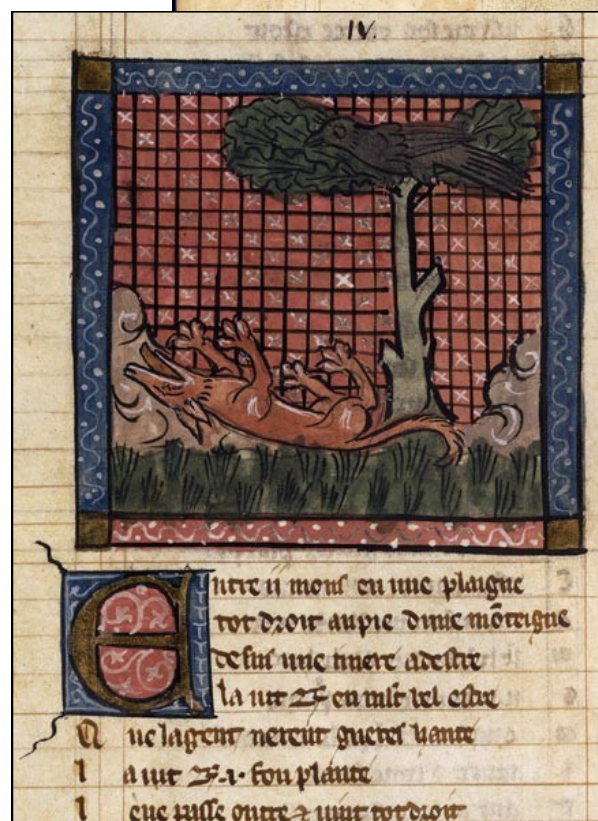 IV.
Entre ii mons en une plaigne
tot droit au pie dune mōteigne
desus une riuere adestre
la uit R en mlt bel estre
Que lagent nerent gueres hante
la uit R .i. fou plante
leue passe outre ⁊ uint tot droit